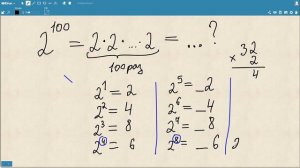 2^100 = 2·2·...2 = ... ?
100 раз
× 32
2
4
2^1 = 2
2^2 = 4
2^3 = 8
2^4 = 6
2^5 = _2
2^6 = _4
2^7 = _8
2^8 = _6
2